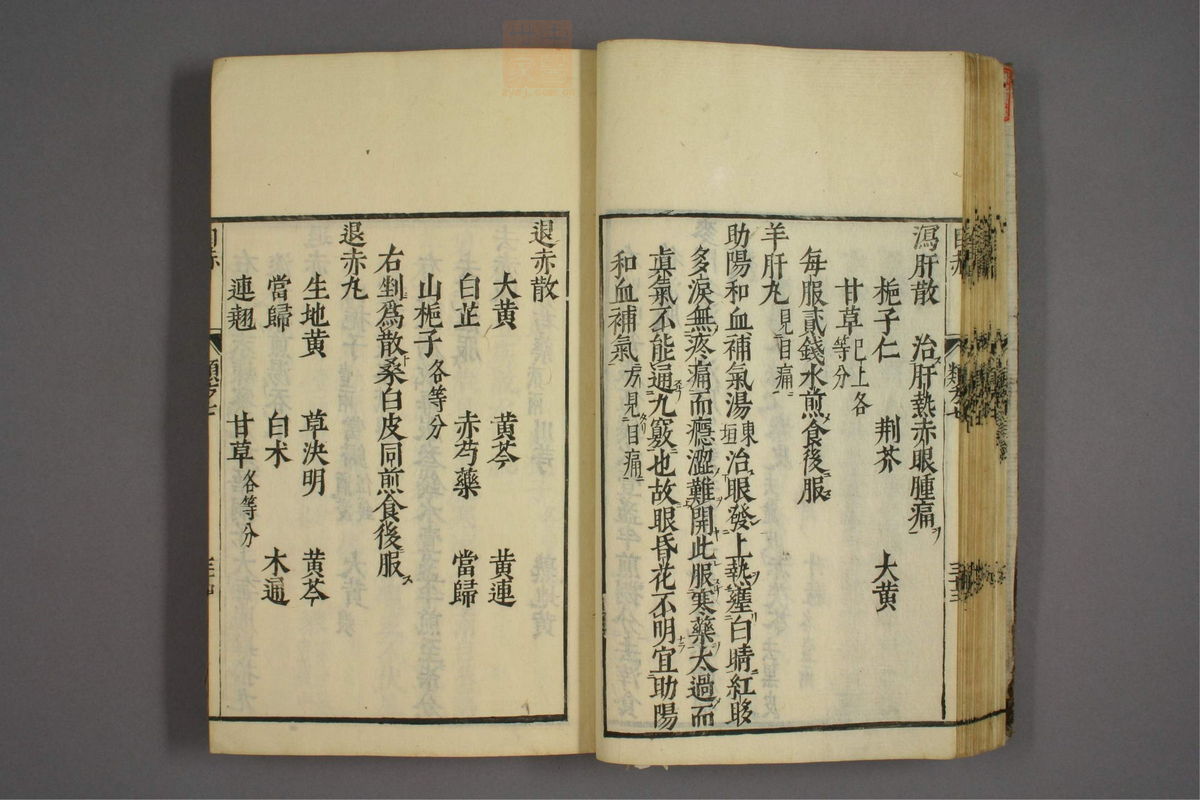 瀉肝散　治肝熱赤眼腫痛
梔子仁　荆芥　大黄
甘草已上各等分
每服貳錢水煎食後服
羊肝丸見目痛
助陽和血補氣湯東垣治眼發上熱壅白睛紅眵
多淚無疼痛而癮澀難開此服寒藥太過而
真氣不能通九竅也故眼昏花不明宜助陽
和血補氣方見目痛
退赤散
大黄　黄芩　黄連
白芷　赤芍藥　當歸
山梔子各等分
右剉爲散桑白皮同煎食後服
退赤丸
生地黄　草決明　黄芩
當歸　白术　木通
連翹　甘草各等分